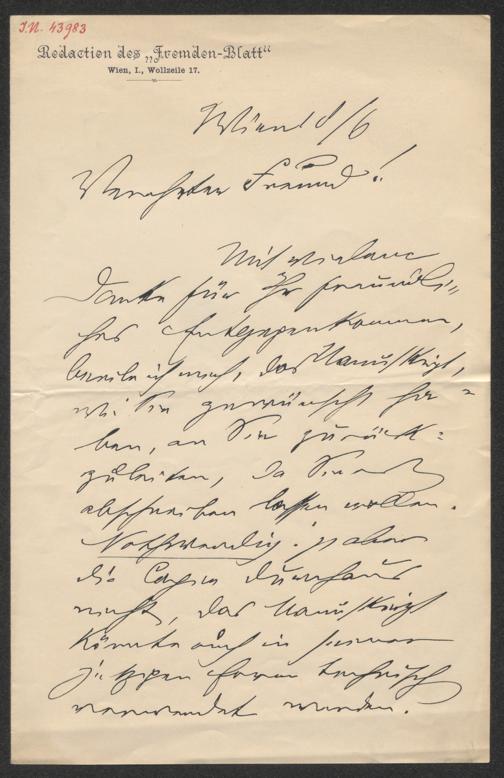 I.N. 43983
Redaction des „Fremden-Blatt“
Wien, I., Wollzeile 17.
Wien 8/6
Verehrter Freund!
Mit vielem
Danke für Ihr freundli-
ches Entgegenkommen,
beeile ich mich, das Manuskript,
wie Sie gewünscht ha-
ben, an Sie zurück-
zuleiten, da Sie es
abschreiben lassen wollen.
Nothwendig ist aber
die Copie durchaus
nicht, das Manuskript
könnte auch in seiner
jetzigen Form technisch
verwendet werden.